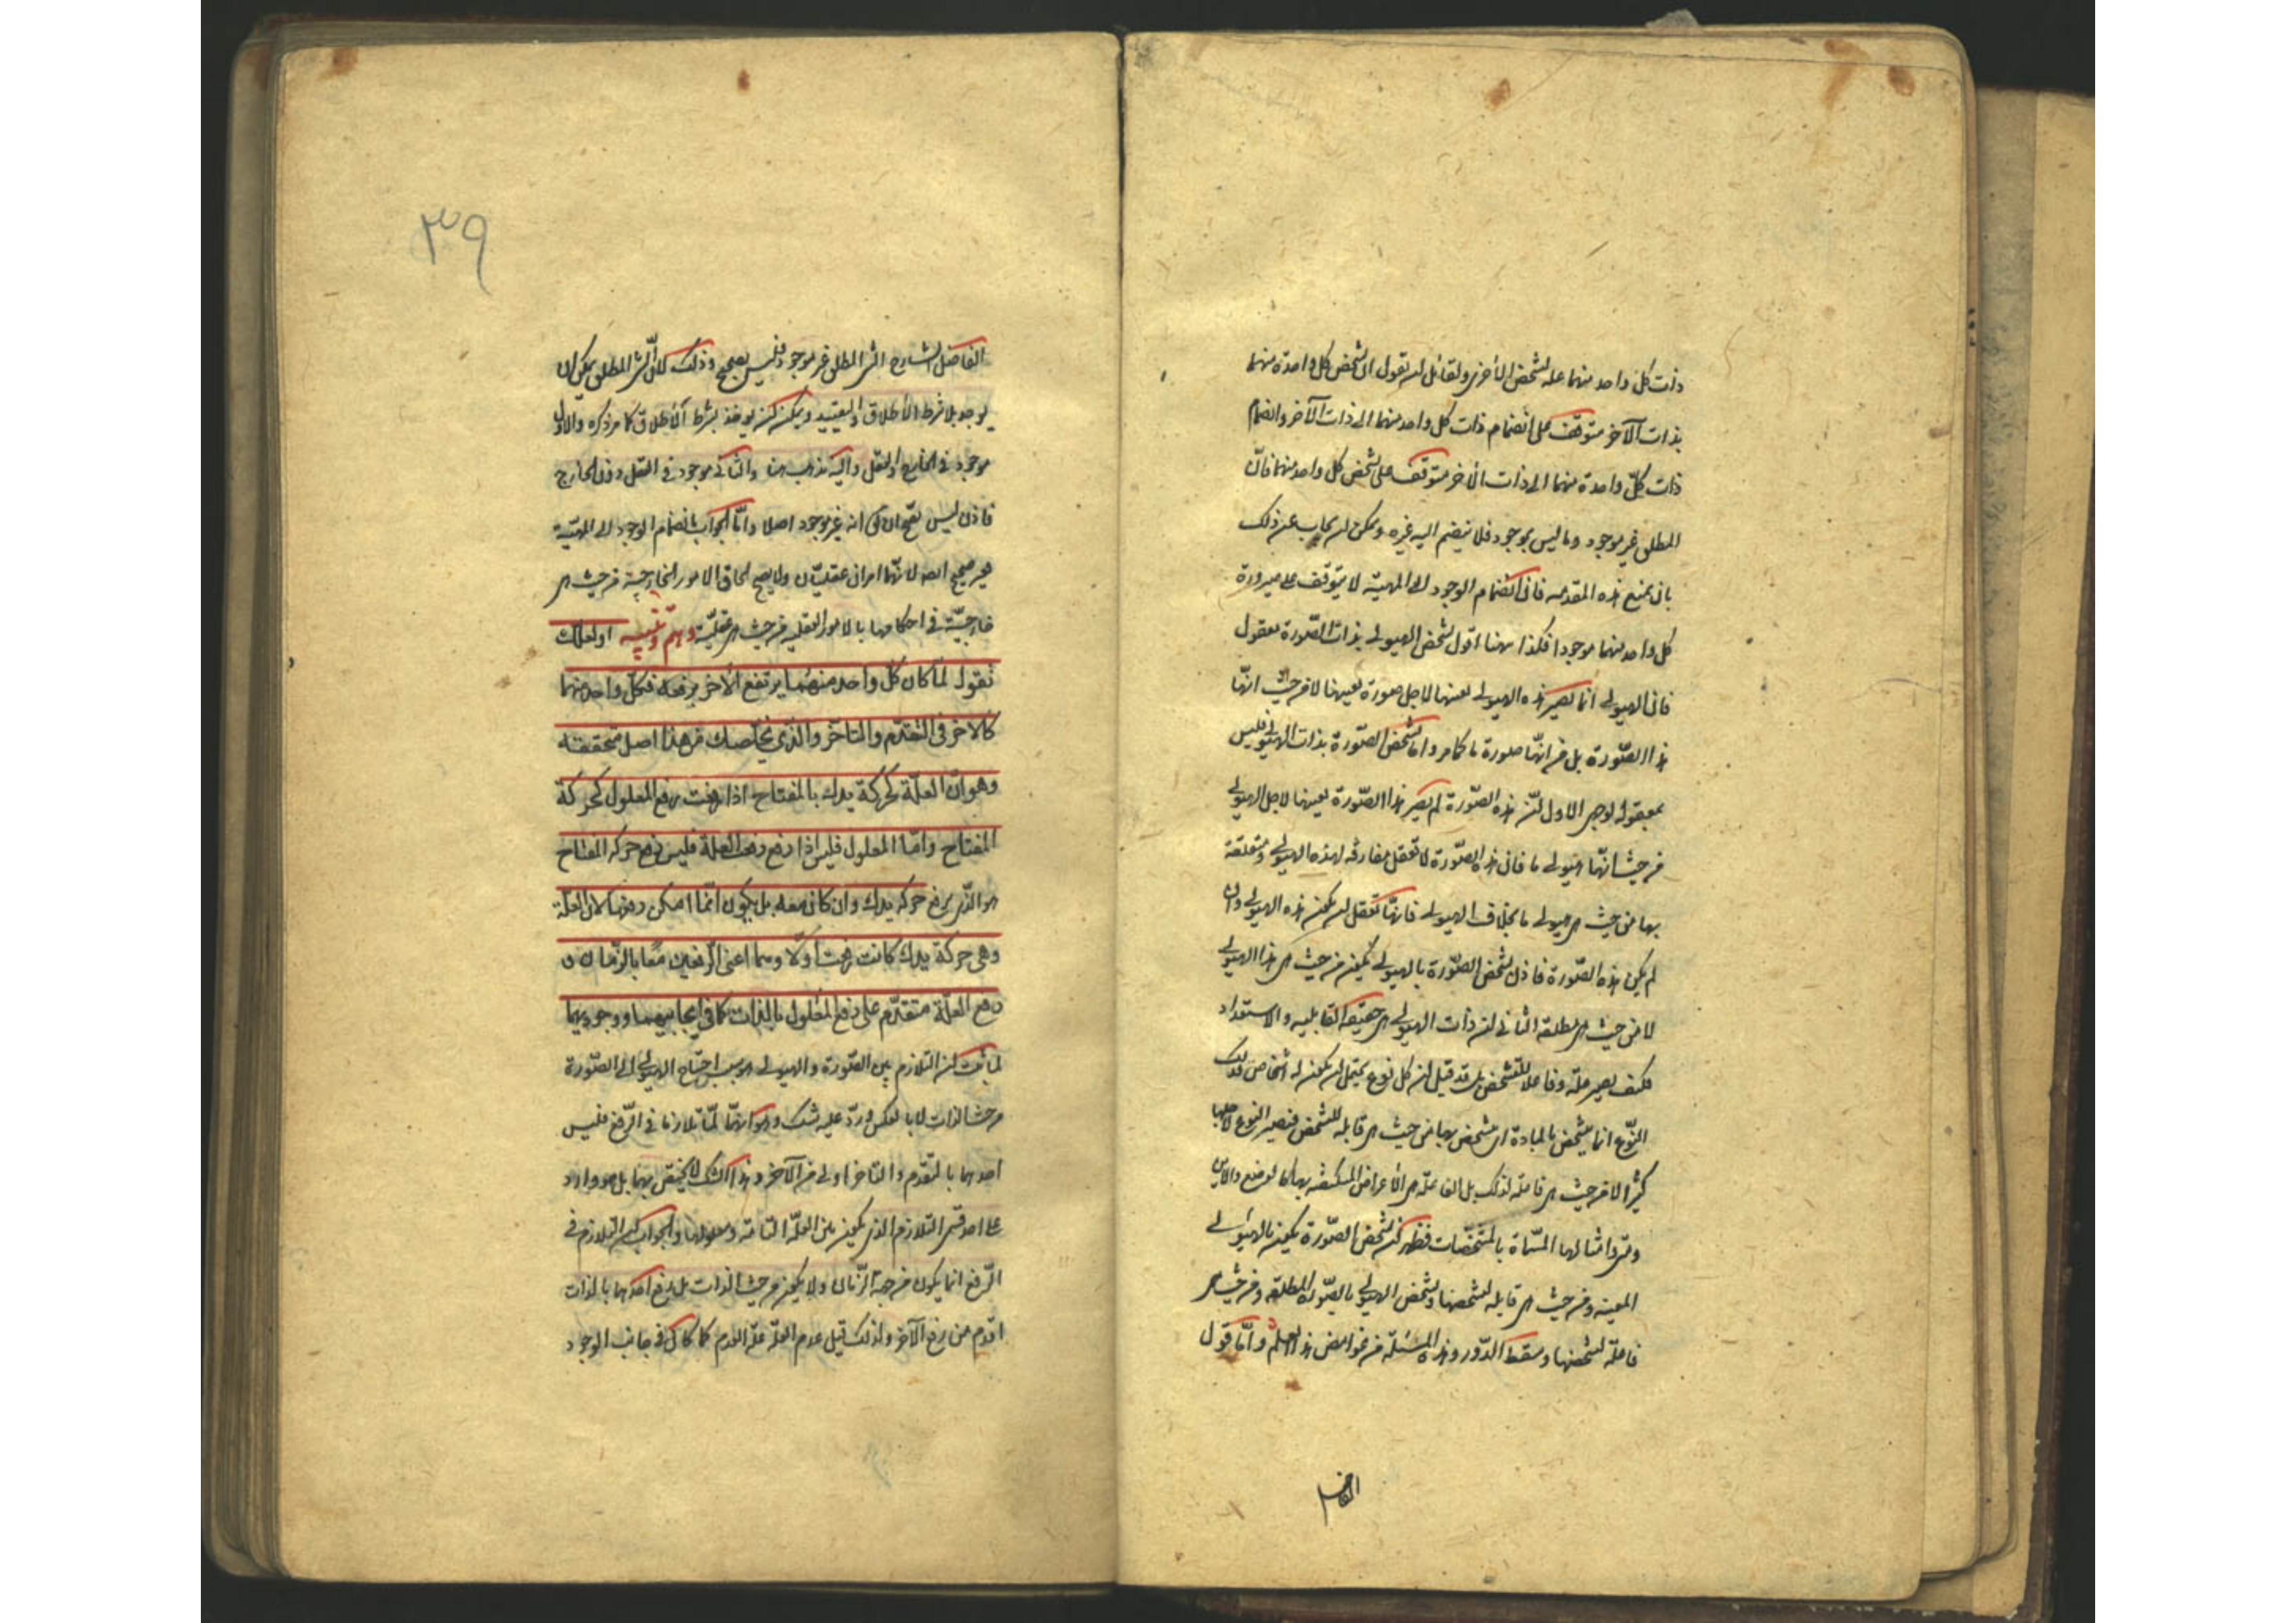 ذات كل واحد منهما علة لتشخص الأخرى ولقائل ان يقول ان تشخص كل واحدة منهما
بذات الآخر متوقف على انضمام ذات كل واحد منهما الى ذات الآخر وانضمام
ذات كلّ واحدة منهما الى ذات الآخر متوقف على تشخص كل واحد منهما فانّ
المطلق غير موجود وما ليس بموجود فلا ينضم اليه غيره ويمكن ان يجاب عن ذلك
بان يمنع هذه المقدمه فان انضمام الوجود الى المهيّة لا يتوقف على صيرورة
كل واحد منهما موجودا فكذا ههنا اقول تشخص الهيولى بذات الصّورة معقول
فان الهيولى انما تصير هذه الهيولى بعينها لاجل صورة بعينها لا من حيث انّها
هذا الصّورة بل من انّها صورة ما كما مر واما تشخص الصّورة بذات الهيولى فليس
بمعقول لوجهين الاول ان هذه الصّورة لم يصر هذا الصّورة بعينها لاجل الهيولى
من حيث انّها هيولى ما فان هذه الصّورة لا تعقل مفارقه لهذه الهيولى ومتعلقة
بها من حيث هي هيولى ما بخلاف الهيولى فانها تعقل ان يكون هذه الهيولى وان
لم يكن هذه الصّورة فاذن تشخص الصّورة بالهيولى يكون من حيث هي هذا الهيولى
لا من حيث هي مطلقه الثانى ان ذات الهيولى هي حقيقة القابليه والاستعداد
فكيف يصير علّه وفاعلا للتشخص بل قد قيل ان كل نوع يحتمل ان يكون له اشخاص فذلك
النّوع انما يتشخص بالمادة اى يتشخص بها من حيث هي قابله للتشخص فيصير النوع لاجلها
كثيرا لا من حيث هي فاعله لذلك بل الفاعله هي الأعراض المكتنفه بها كالوضع والاين
ومتى وامثالها المسمّاة بالمشخّصات فظهر ان تشخص الصّورة يكون بالهيولى
المعينه ومن حيث هي قابله لتشخصها وتشخص الهيولى بالصّورة المطلقه ومن حيث هي
فاعلة لتشخصها وسقط الدّور وهذه المسئلة من غوامض هذا العلم وامّا قول
الفاضل
٣٩
الفاضل الشارح الشئ المطلق غير موجود فليس بصحيح وذلك لانّ الشئ المطلق يمكن ان
يوجد بلا شرط الاطلاق والتقييد ويمكن ان يوخذ بشرط الاطلاق كما مر ذكره والاول
موجود فى الخارج والعقل واليه نذهب هنا والثانى موجود فى العقل دون الخارج
فاذن ليس بصحيح ان انه غير موجود اصلا وامّا الجواب بانضمام الوجود الى المهيّة
غير صحيح ايضا لانّهما امران عقليّان ولا يصح الحاق الامور الخارجيّة من حيث هي
خارجيّة فى احكامها بالامور العقليه من حيث هي عقليّة وهم وتنبيه او لعلّك
تقول لمّا كان كلّ واحد منهما يرتفع الآخر برفعه فكلّ واحد منهما
كالآخر فى التقدّم والتأخّر والّذى يخلّصك من هذا اصل تحققه
وهو انّ العلّة كحركة يدك بالمفتاح اذا رفعت رفع المعلول كحركة
المفتاح وامّا المعلول فليس اذا رفع رفعت العلّة فليس رفع حركه المفتاح
هو الّذى يرفع حركه يدك وان كان معه بل يكون انّما امكن رفعها لانّ العلّة
وهى حركة يدك كانت رفعت اوّلا وهما اعنى الرّفعين معًا بالزّمان و
رفع العلّة متقدّم على رفع المعلول بالذات كما فى ايجابيهما ووجوديهما
لما ثبت ان التلازم بين الصّورة والهيولى هو بسبب احتياج الهيولى الى الصّورة
من حيث الذات لا بالعكس ورد عليه شك وهو انهما لمّا تلازما فى الرّفع فليس
احدهما بالتقدم والتاخر اولى من الآخر وهذا الشك لا يختص بهما بل هو وارد
على احد قسمى التلازم الذى يكون بين العلّه التامّه ومعلولها والجواب ان التلازم فى
الرّفع انما يكون من جهة الزّمان ولا يكون من حيث الذات بل رفع احدهما بالذات
اقدم من رفع الآخر ولذلك قيل عدم العلّه علّه العدم كما كان فى جانب الوجود